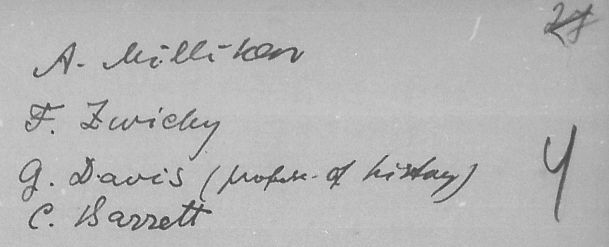 27
A. Millikan
F. Zwicky
G. Davis (profess. of history)
C. Barrett
4